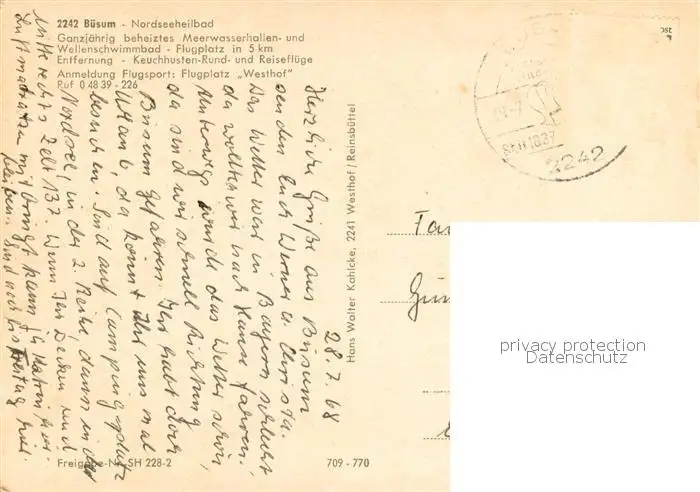 2242 Büsum - Nordseeheilbad
Ganzjährig beheiztes Meerwasserhallen- und
Wellenschwimmbad - Flugplatz in 5 km
Entfernung - Keuchhusten-Rund- und Reiseflüge
Anmeldung Flugsport: Flugplatz „Westhof"
Ruf 0 48 39 - 226
28.7.68
Herzliche Grüße aus Büsum
senden Euch Werner u. Christa.
Das Wetter war in Bayern schlecht
da wollten wir nach Hause fahren.
Unterwegs wurde das Wetter schön,
da sind wir schnell Richtung
Büsum gefahren. Ihr habt doch
Urlaub, da könnt Ihr uns mal
besuchen. Sind auf Campingplatz
Nordsee, in der 2. Reihe, dann in der
Mitte rechts Zelt 137. Wenn Ihr Decken und
Luftmatratzen mitbringt kann Ihr
bleiben. Sind noch bis Freitag hier.
Hans Walter Kahlcke, 2241 Westhof/Reinsbüttel
Freigabe-Nr. SH 228-2
709 - 770
2242
Fa
Gün
privacy protection
Datenschutz